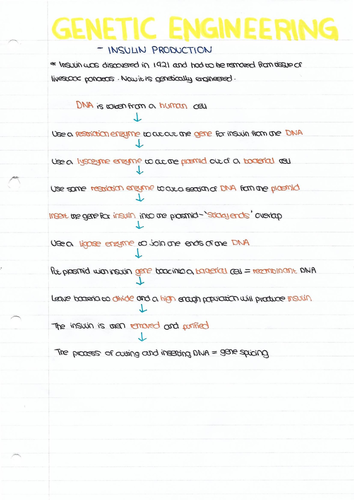 GENETIC ENGINEERING
- INSULIN PRODUCTION
* Insulin was discovered in 1921 and had to be removed from tissue of
livestock pancreas. Now it is genetically engineered.
DNA is taken from a human cell
Use a restriction enzyme to cut out the gene for insulin from the DNA
Use a lysozyme enzyme to cut the plasmid out of a bacterial cell
Use same restriction enzyme to cut a section of DNA from the plasmid
Insert the gene for insulin into the plasmid - 'sticky ends' overlap
Use a ligase enzyme to join the ends of the DNA
Put plasmid with insulin gene back into a bacterial cell = recombinant DNA
Leave bacteria to divide and a high enough population will produce insulin
The insulin is then removed and purified
The process of cutting and inserting DNA = gene splicing